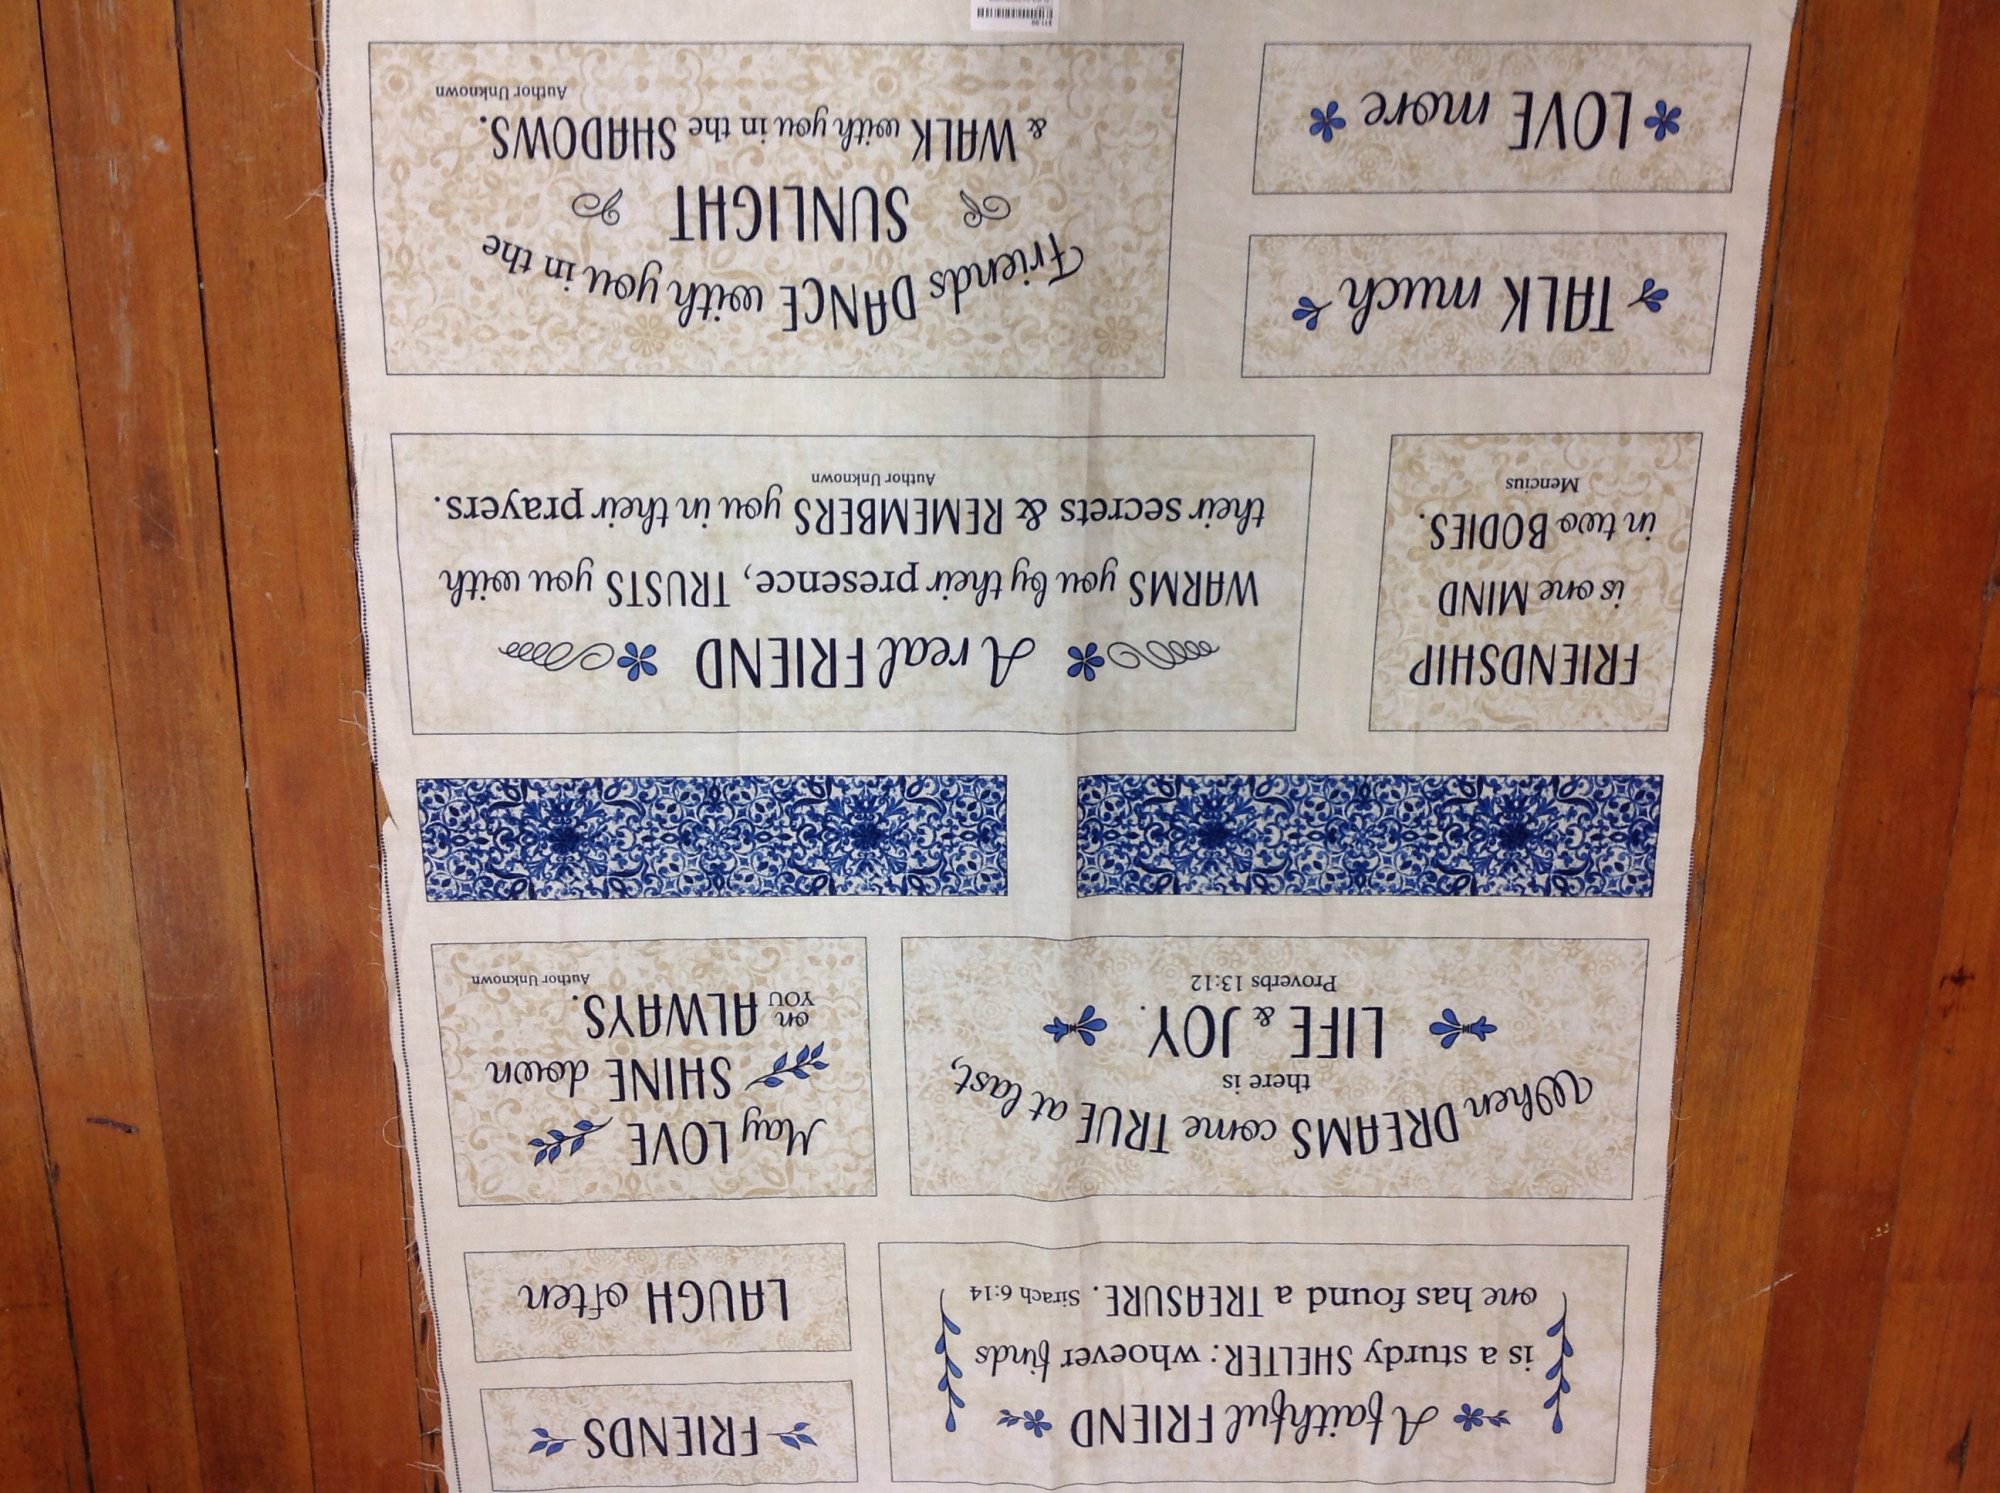 A faithful FRIEND
is a sturdy SHELTER: whoever finds
one has found a TREASURE. Sirach 6:14
FRIENDS
LAUGH often
When DREAMS come TRUE at last,
there is
LIFE & JOY.
Proverbs 13:12
May LOVE
SHINE down
on YOU ALWAYS.
Author Unknown
FRIENDSHIP
is one MIND
in two BODIES.
Mencius
A real FRIEND
WARMS you by their presence, TRUSTS you with
their secrets & REMEMBERS you in their prayers.
Author Unknown
TALK much
LOVE more
Friends DANCE with you in the
SUNLIGHT
& WALK with you in the SHADOWS.
Author Unknown